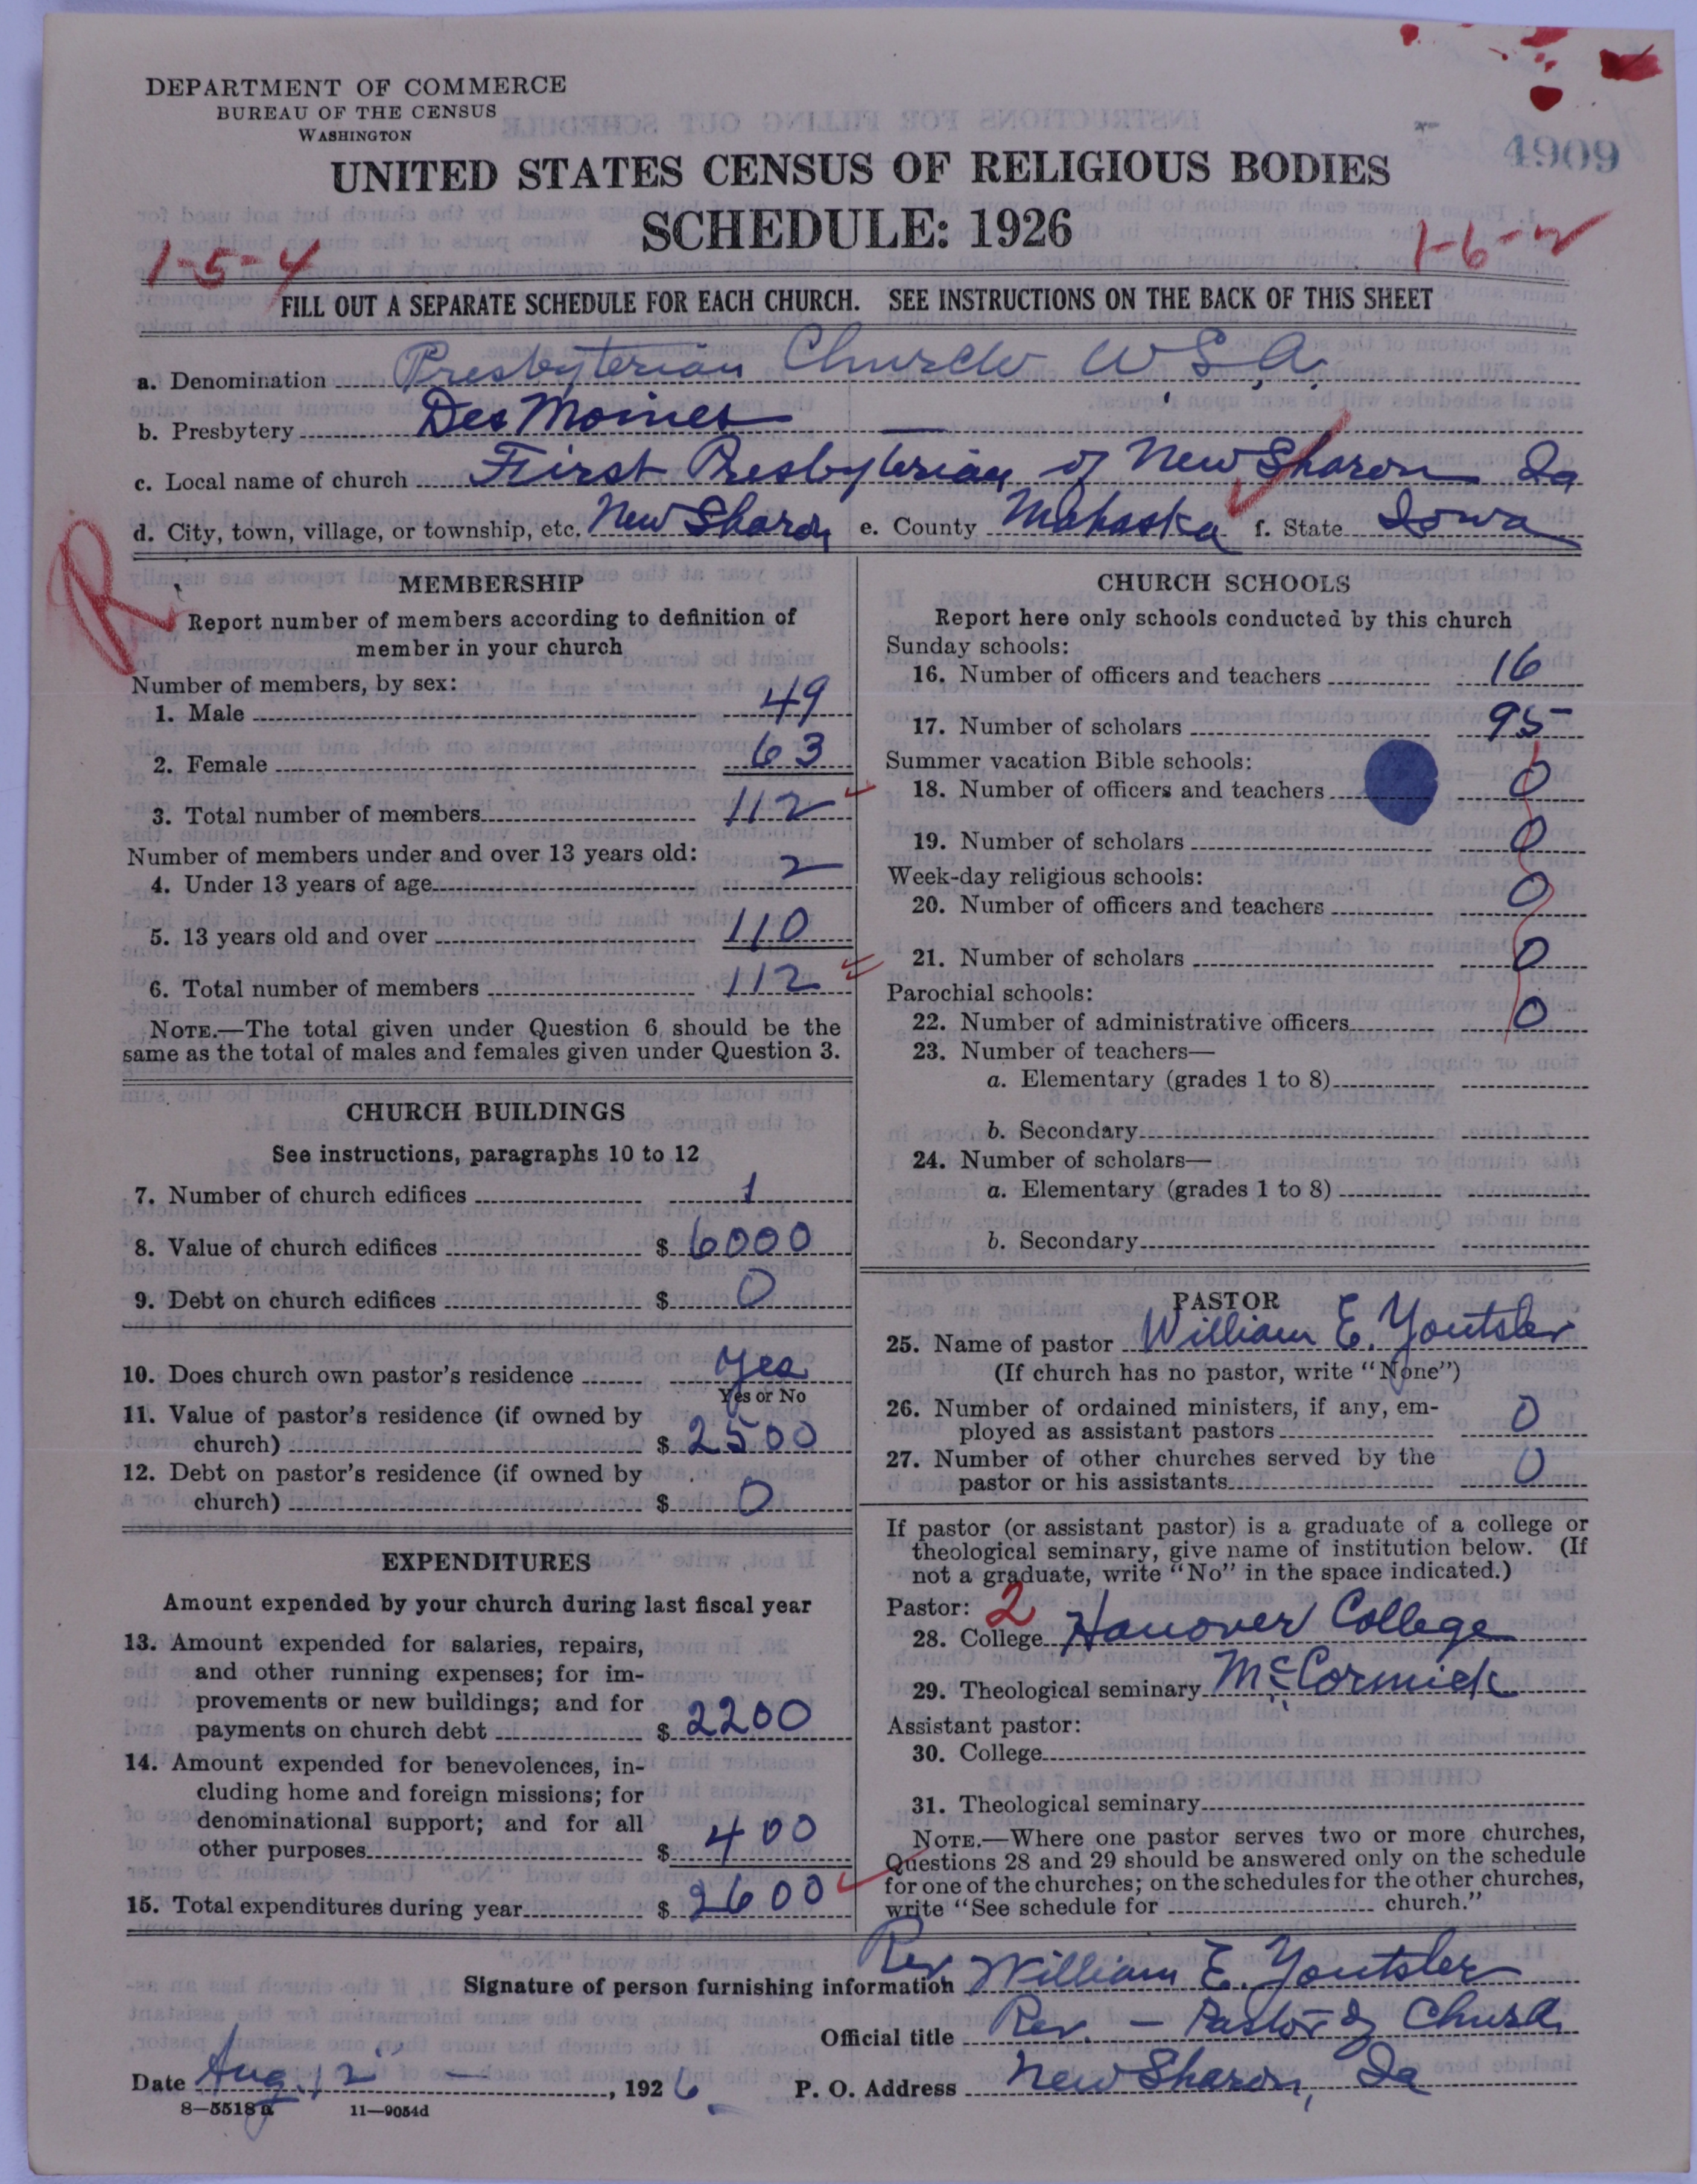 DEPARTMENT OF COMMERCE
BUREAU OF THE CENSUS
WASHINGTON
4909
UNITED STATES CENSUS OF RELIGIOUS BODIES
SCHEDULE: 1926
1-5-4
1-6-2
FILL OUT A SEPARATE SCHEDULE FOR EACH CHURCH. SEE INSTRUCTIONS ON THE BACK OF THIS SHEET
a. Denomination Presbyterian Church U.S.A.
b. Presbytery Des Moines
c. Local name of church First Presbyterian of New Sharon Ia
d. City, town, village, or township, etc. New Sharon e. County Mahaska f. State Iowa
R
MEMBERSHIP
Report number of members according to definition of
member in your church
Number of members, by sex:
1. Male 49
2. Female 63
3. Total number of members 112
Number of members under and over 13 years old:
4. Under 13 years of age 2
5. 13 years old and over 110
6. Total number of members 112
NOTE.—The total given under Question 6 should be the
same as the total of males and females given under Question 3.
CHURCH BUILDINGS
See instructions, paragraphs 10 to 12
7. Number of church edifices 1
8. Value of church edifices $ 6000
9. Debt on church edifices $ 0
10. Does church own pastor's residence Yes
Yes or No
11. Value of pastor's residence (if owned by
church) $ 2500
12. Debt on pastor's residence (if owned by
church) $ 0
EXPENDITURES
Amount expended by your church during last fiscal year
13. Amount expended for salaries, repairs,
and other running expenses; for im-
provements or new buildings; and for
payments on church debt $ 2200
14. Amount expended for benevolences, in-
cluding home and foreign missions; for
denominational support; and for all
other purposes $ 400
15. Total expenditures during year $ 2600
CHURCH SCHOOLS
Report here only schools conducted by this church
Sunday schools:
16. Number of officers and teachers 16
17. Number of scholars 95
Summer vacation Bible schools:
18. Number of officers and teachers 0
19. Number of scholars 0
Week-day religious schools:
20. Number of officers and teachers 0
21. Number of scholars 0
Parochial schools:
22. Number of administrative officers 0
23. Number of teachers—
a. Elementary (grades 1 to 8)
b. Secondary
24. Number of scholars—
a. Elementary (grades 1 to 8)
b. Secondary
PASTOR
25. Name of pastor William E. Youtsler
(If church has no pastor, write "None")
26. Number of ordained ministers, if any, em-
ployed as assistant pastors 0
27. Number of other churches served by the
pastor or his assistants 0
If pastor (or assistant pastor) is a graduate of a college or
theological seminary, give name of institution below. (If
not a graduate, write "No" in the space indicated.)
Pastor: 2
28. College Hanover College
29. Theological seminary McCormick
Assistant pastor:
30. College
31. Theological seminary
NOTE.—Where one pastor serves two or more churches,
Questions 28 and 29 should be answered only on the schedule
for one of the churches; on the schedules for the other churches,
write "See schedule for church."
Signature of person furnishing information Rev William E. Youtsler
Official title Rev. — Pastor of Church
Date Aug. 12, 1926 P. O. Address New Sharon, Ia
8—5518a 11—9054d